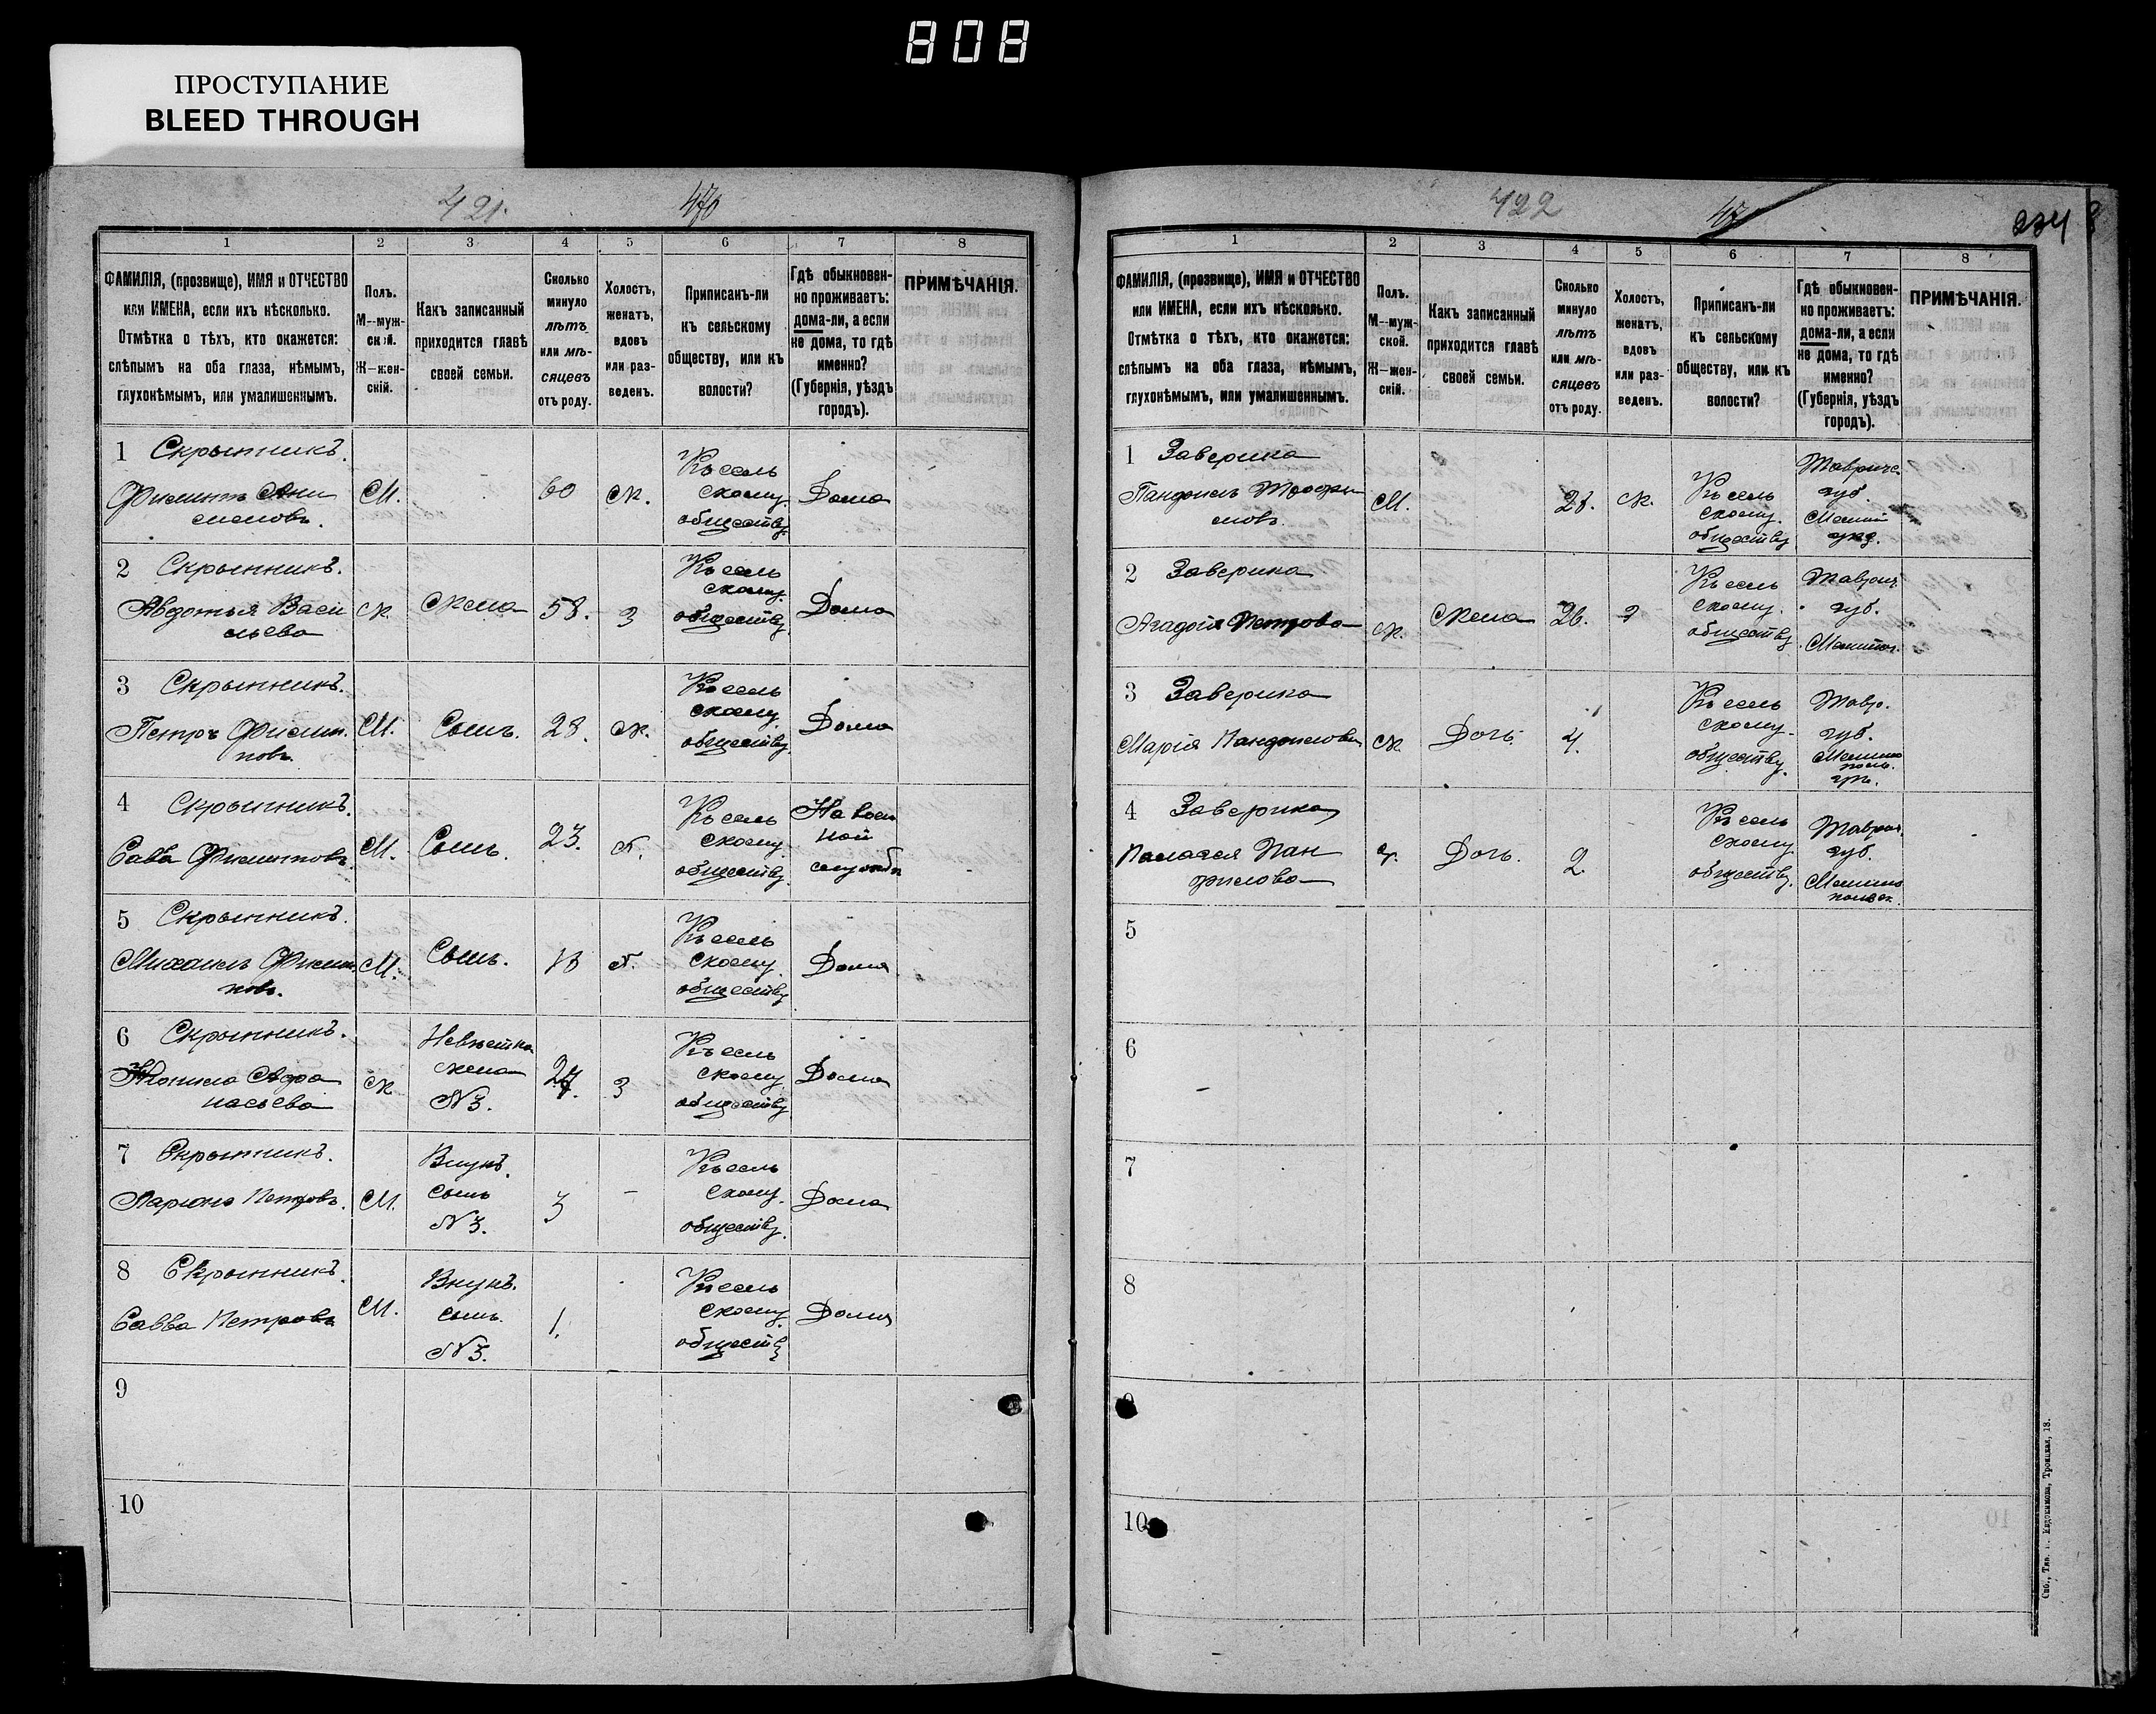 808
ПРОСТУПАНИЕ
BLEED THROUGH
421.
470
1 2 3 4 5 6 7 8
ФАМИЛІЯ, (прозвище), ИМЯ и ОТЧЕСТВО
или ИМЕНА, если ихъ нѣсколько.
Отмѣтка о тѣхъ, кто окажется:
слѣпымъ на оба глаза, нѣмымъ,
глухонѣмымъ, или умалишеннымъ.
Полъ.
М—муж-
ской.
Ж—жен-
скій.
Какъ записанный
приходится главѣ
своей семьи.
Сколько
минуло
лѣтъ
или мѣ-
сяцевъ
отъ роду.
Холостъ,
женатъ,
вдовъ
или раз-
веденъ.
Приписанъ-ли
къ сельскому
обществу, или къ
волости?
Гдѣ обыкновен-
но проживаетъ:
дома-ли, а если
не дома, то гдѣ
именно?
(Губернія, уѣздъ
городъ).
ПРИМѢЧАНІЯ.
1 Скрыпникъ.
Филиппъ
М.
60
Ж.
Къ сель
скому
обществу.
Дома
2 Скрыпникъ.
Авдотья Васи
льева
Ж.
Жена
58.
З
Къ сель
скому.
обществу.
Дома
3 Скрыпникъ.
Петръ Филип.
повъ.
М.
Сынъ.
28.
Ж.
Къ сель
скому.
обществу.
Дома
4 Скрыпникъ.
Сава Филиповъ.
М.
Сынъ.
23.
Х.
Къ сель
скому.
обществу.
На воен
ной
службѣ
5 Скрыпникъ.
Михаилъ Филип
повъ.
М.
Сынъ.
18
Х.
Къ сель
скому.
обществу
Дома
6 Скрыпникъ.
Афа
насьева
Ж
Невѣстка
жена
№3.
З
Къ сель
скому
обществу
Дома
7 Скрыпникъ.
Ларионъ Петровъ.
М.
Внукъ.
сынъ
№3.
3
-
Къ сель
скому.
обществу.
Дома
8 Скрыпникъ.
Савва Петровъ
М.
Внукъ.
сынъ.
№3.
1.
Къ сель
скому.
обществу
Дома
9
10
422
234
1 2 3 4 5 6 7 8
ФАМИЛІЯ, (прозвище), ИМЯ и ОТЧЕСТВО
или ИМЕНА, если ихъ нѣсколько.
Отмѣтка о тѣхъ, кто окажется:
слѣпымъ на оба глаза, нѣмымъ,
глухонѣмымъ, или умалишеннымъ.
Полъ.
М—муж-
ской.
Ж—жен-
скій.
Какъ записанный
приходится главѣ
своей семьи.
Сколько
минуло
лѣтъ
или мѣ-
сяцевъ
отъ роду.
Холостъ,
женатъ,
вдовъ
или раз-
веденъ.
Приписанъ-ли
къ сельскому
обществу, или къ
волости?
Гдѣ обыкновен-
но проживаетъ:
дома-ли, а если
не дома, то гдѣ
именно?
(Губернія, уѣздъ
городъ).
ПРИМѢЧАНІЯ.
1 Заверика
Трофи
мовъ.
М.
28.
Ж.
Къ сель
скому.
обществу
Тавриче
губ.
2 Заверика
Петрова
Ж.
Жена
26.
З
Къ сель
скому.
обществу
Таврич.
губ.
Мелитоп.
3 Заверика
Марія
Ж
Дочь.
4.
Къ сель
скому.
обществу.
Тавр.
губ.
4 Заверика
Пан
филова
Дочь.
2.
Къ сель
скому
обществу.
Таврич.
губ.
5
6
7
8
9
10